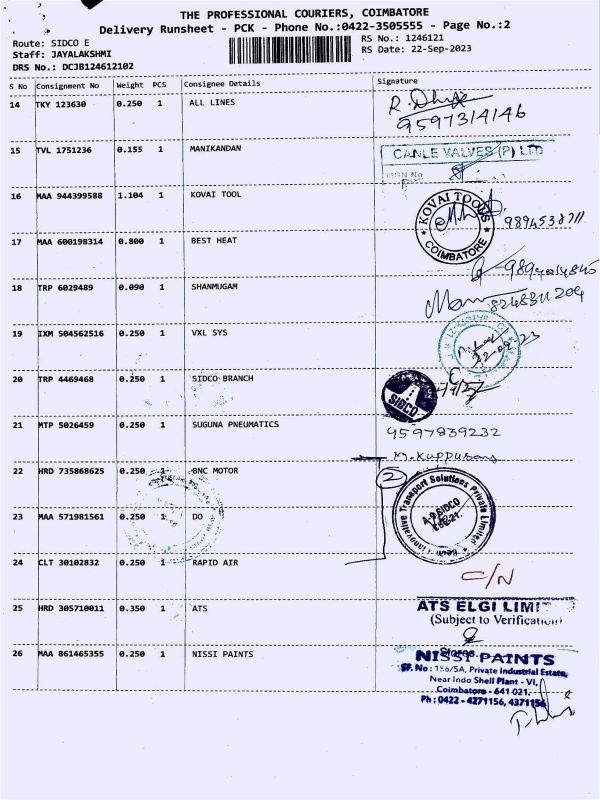 THE PROFESSIONAL COURIERS, COIMBATORE
Delivery Runsheet - PCK - Phone No.:0422-3505555 - Page No.:2
Route: SIDCO E
RS No.: 1246121
Staff: JAYALAKSHMI
RS Date: 22-Sep-2023
DRS No.: DCJB124612102
S No Consignment No Weight PCS Consignee Details Signature
14 TKY 123630 0.250 1 ALL LINES
9597314146
15 TVL 1751236 0.155 1 MANIKANDAN
CANLE VALVES (P) LTD
16 MAA 944399588 1.104 1 KOVAI TOOL
KOVAI TOOLS
COIMBATORE
9894538711
17 MAA 600198314 0.800 1 BEST HEAT
18 TRP 6029489 0.090 1 SHANMUGAM
8248311204
19 IXM 504562516 0.250 1 VXL SYS
20 TRP 4469468 0.250 1 SIDCO BRANCH
SIDCO
21 MTP 5026459 0.250 1 SUGUNA PNEUMATICS
9597839232
22 HRD 735868625 0.250 1 BNC MOTOR
2
Innovative Transport Solutions Private Limited
23 MAA 571981561 0.250 1 DO
24 CLT 30102832 0.250 1 RAPID AIR
C/N
25 HRD 305710011 0.350 1 ATS
ATS ELGI LIMIT
(Subject to Verification)
26 MAA 861465355 0.250 1 NISSI PAINTS
Stores
NISSI PAINTS
SF. No : 156/5A, Private Industrial Estate,
Near Indo Shell Plant - VI,
Coimbatore - 641 021.
Ph : 0422 - 4271156, 4371156